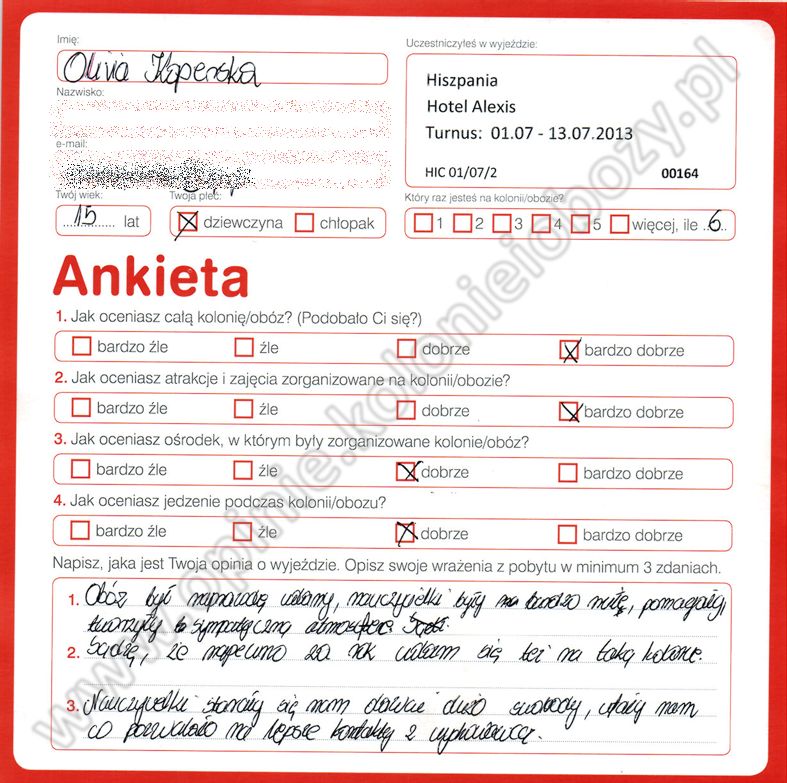 Imię:
Olivia
Uczestniczyłeś w wyjeździe:
Hiszpania
Hotel Alexis
Turnus: 01.07 - 13.07.2013
HIC 01/07/2 00164
Nazwisko:
e-mail:
Twój wiek:
15 lat
Twoja płeć:
dziewczyna chłopak
Który raz jesteś na kolonii/obozie?
1 2 3 4 5 więcej, ile 6
Ankieta
1. Jak oceniasz całą kolonię/obóz? (Podobało Ci się?)
bardzo źle źle dobrze bardzo dobrze
2. Jak oceniasz atrakcje i zajęcia zorganizowane na kolonii/obozie?
bardzo źle źle dobrze bardzo dobrze
3. Jak oceniasz ośrodek, w którym były zorganizowane kolonie/obóz?
bardzo źle źle dobrze bardzo dobrze
4. Jak oceniasz jedzenie podczas kolonii/obozu?
bardzo źle źle dobrze bardzo dobrze
Napisz, jaka jest Twoja opinia o wyjeździe. Opisz swoje wrażenia z pobytu w minimum 3 zdaniach.
1. Obóz był naprawdę udany, nauczycielki były bardzo miłe, pomagały,
tworzyły sympatyczną atmosferę.
2. Sądzę, że napewno za rok udam się też na taką kolonie.
3. Nauczycielki starały się nam dawać dużo swobody, ufały nam
co pozwalało na lepsze kontakty z wychowawcą.
www.opinie.kolonieiobozy.pl